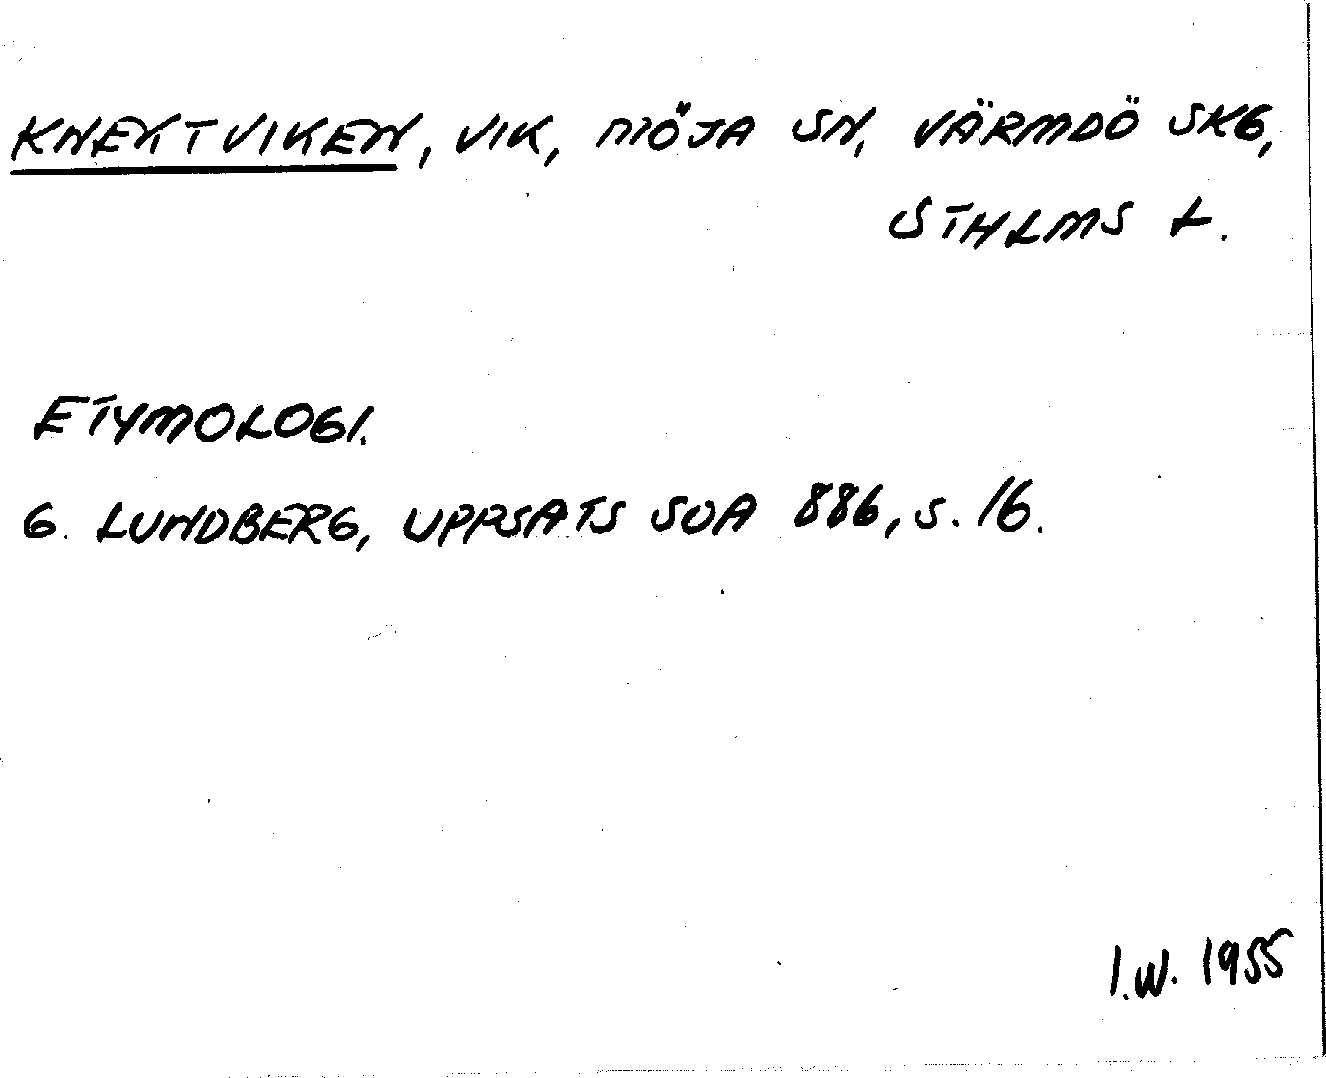 KNEKTVIKEN, VIK, MÖJA SN, VÄRMDÖ SKG,
STHLMS L.
ETYMOLOGI.
G. LUNDBERG, UPPSATS SOA 886, S. 16.
I.W. 1955